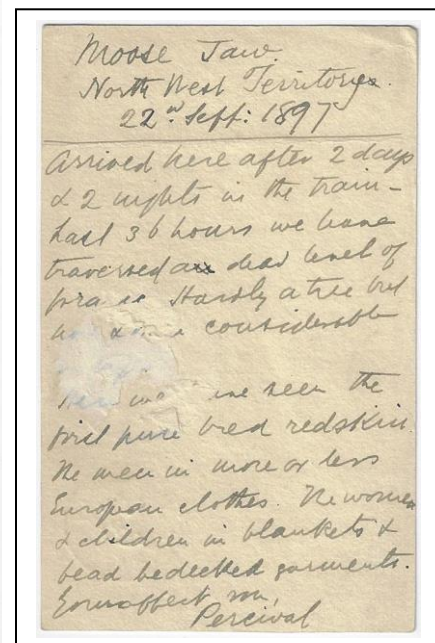 Moose Jaw.
North West Territories.
22nd Sept: 1897
Arrived here after 2 days
& 2 nights in the train -
Last 36 hours we have
traversed a dead level of
Hardly a tree but
considerable
we seen the
first pure bred redskin
The men in more or less
European clothes. The women
& children in blankets &
bead bedecked garments.
Your affect son,
Percival